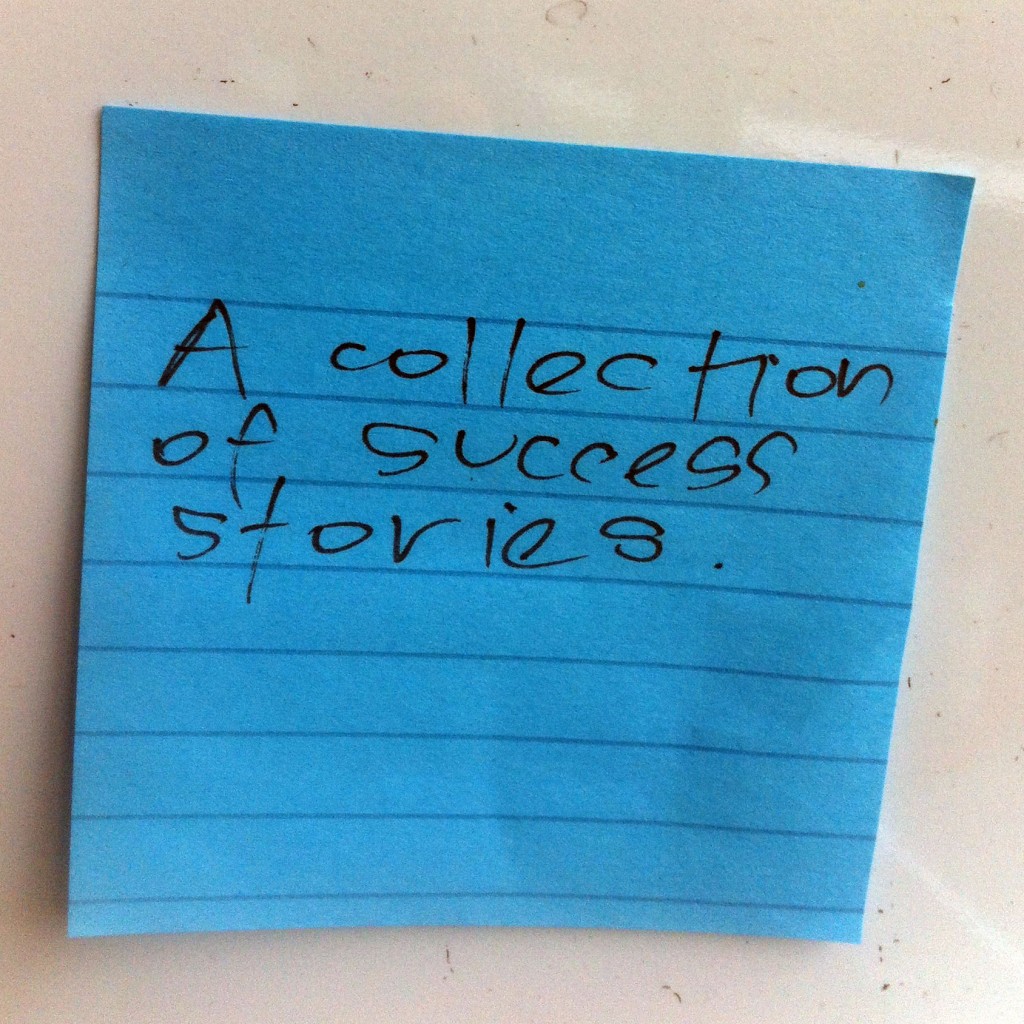 A collection
of success
stories.